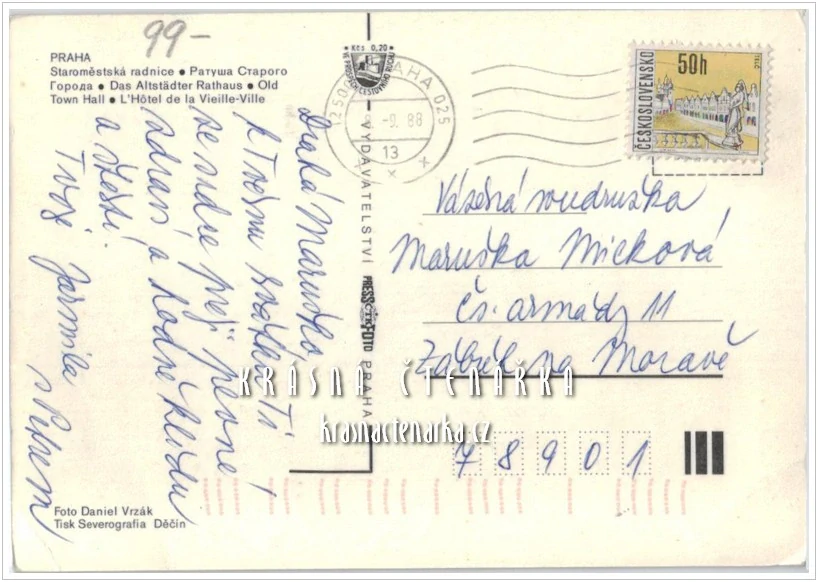 99-
PRAHA
Staroměstská radnice • Ратуша Старого
Города • Das Altstädter Rathaus • Old
Town Hall • L'Hôtel de la Vieille-Ville
Kčs 0,20
PRAHA 025
8.-9. 88
13
50h
ČESKOSLOVENSKO
Drahá Maruško,
k Tvému svátku Ti
ze srdce přeji pevné
zdraví a hodně klidu
a štěstí.
Tvoje Jarmila
s Petrem
VYDAVATELSTVÍ PRESSFOTO PRAHA
ČTK
Vážená soudružka
Maruška Micková
Čs. armády 11
Zábřeh na Moravě
78901
KRÁSNÁ ČTENÁŘKA
krasnactenarka.cz
Foto Daniel Vrzák
Tisk Severografia Děčín